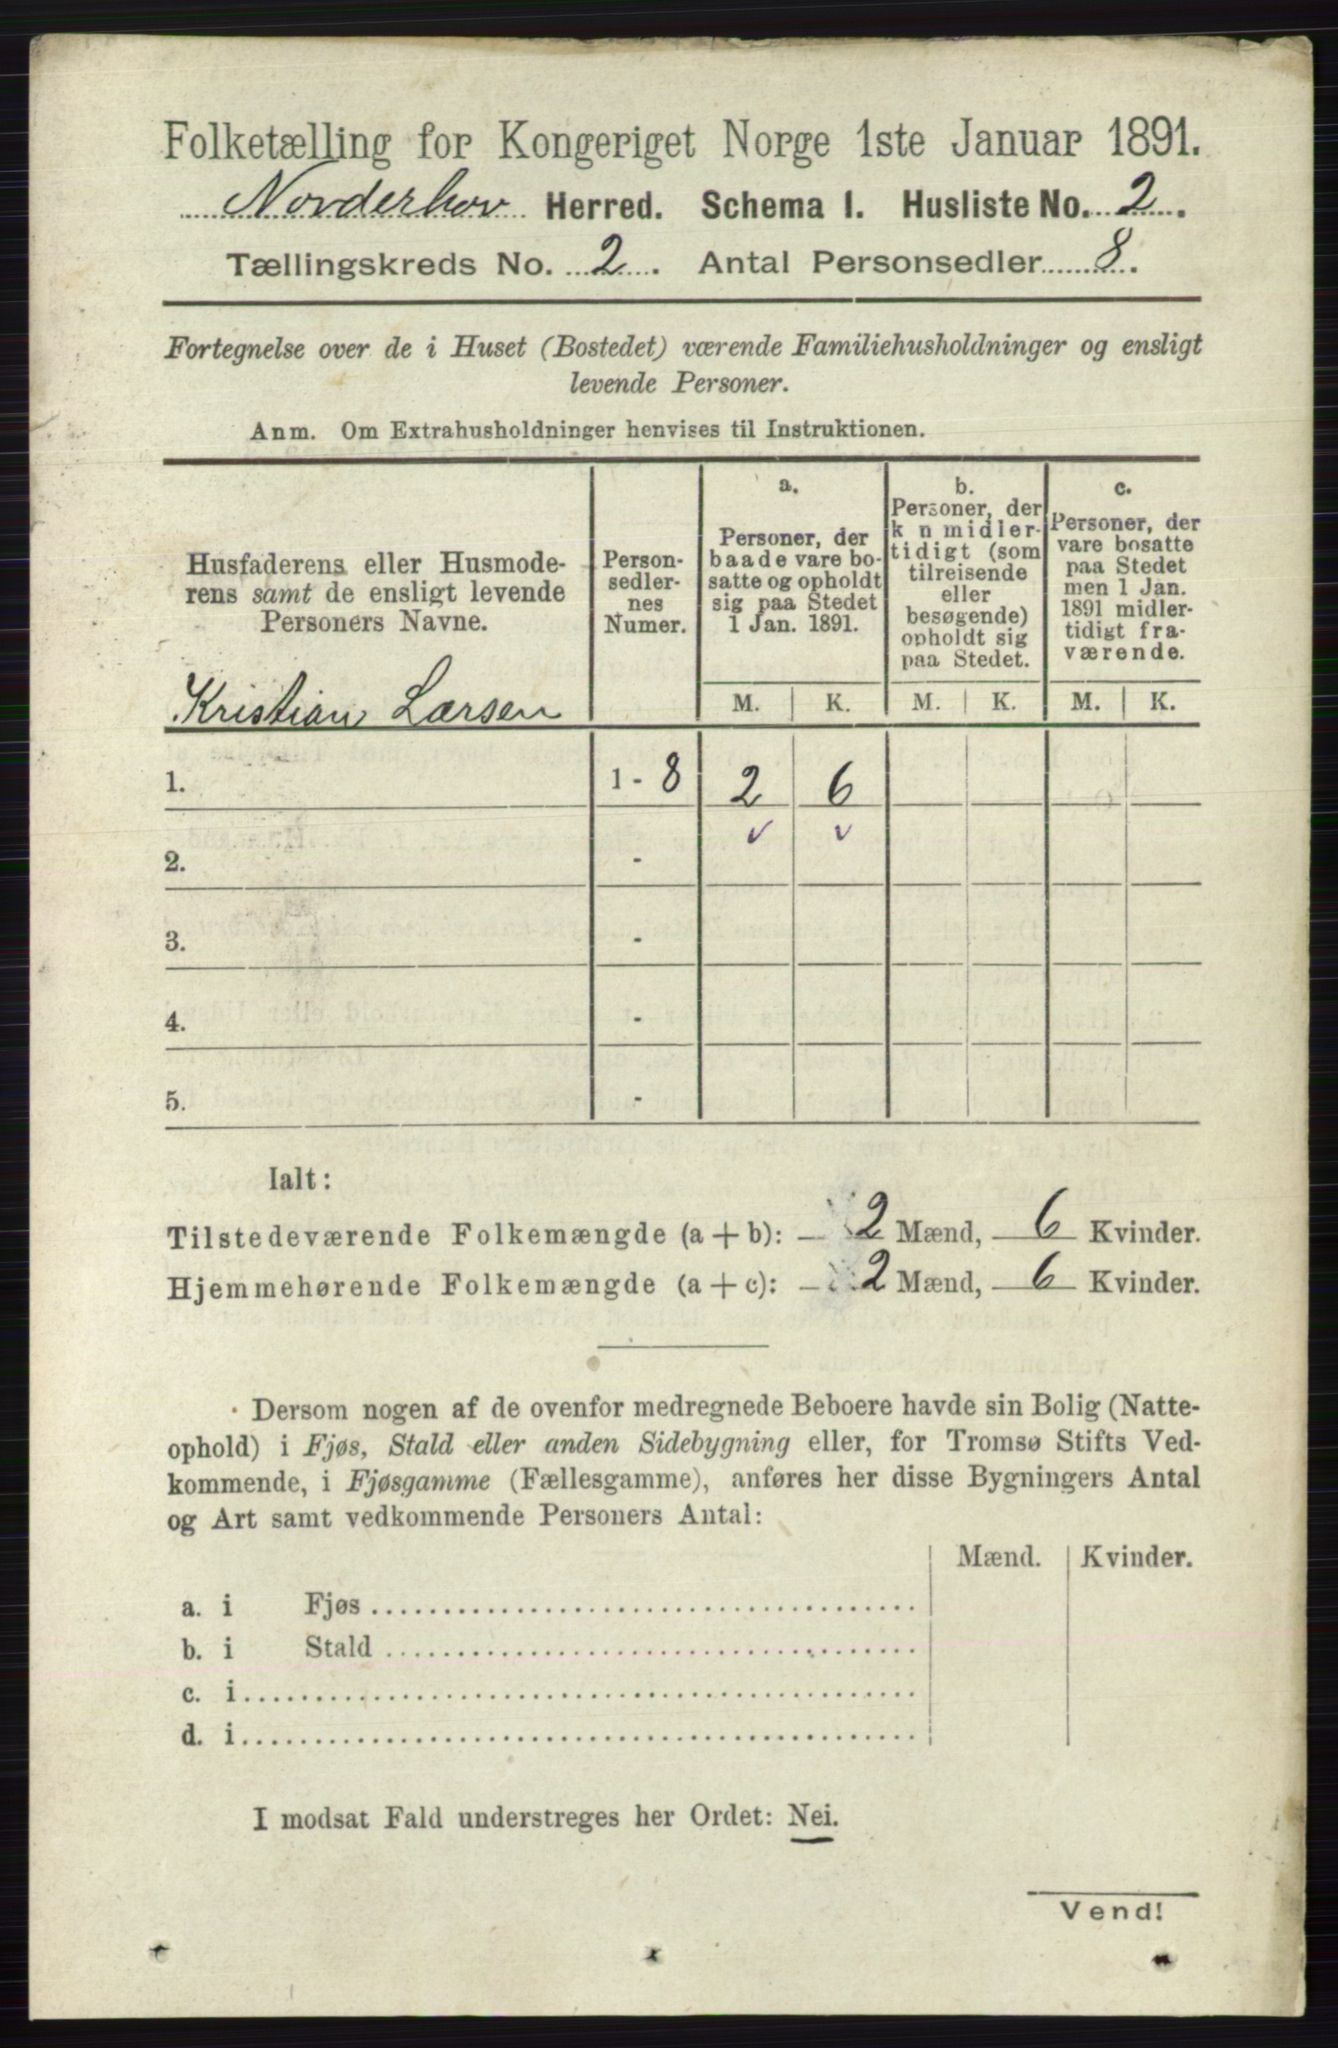 Folketælling for Kongeriget Norge 1ste Januar 1891.
Norderhov Herred. Schema I. Husliste No. 2.
Tællingskreds No. 2. Antal Personsedler 8.
Fortegnelse over de i Huset (Bostedet) værende Familiehusholdninger og ensligt
levende Personer.
Anm. Om Extrahusholdninger henvises til Instruktionen.
Husfaderens eller Husmode-
rens samt de ensligt levende
Personers Navne.
Person-
sedler-
nes
Numer.
a.
Personer, der
baade vare bo-
satte og opholdt
sig paa Stedet
1 Jan. 1891.
b.
Personer, der
k n midler-
tidigt (som
tilreisende
eller
besøgende)
opholdt sig
paa Stedet.
c.
Personer, der
vare bosatte
paa Stedet
men 1 Jan.
1891 midler-
tidigt fra-
værende.
M. K. M. K. M. K.
Kristian Larsen
1. 1 - 8 2 6
v v
2. -
3. -
4. -
5. -
Ialt:
Tilstedeværende Folkemængde (a + b): 2 Mænd, 6 Kvinder.
Hjemmehørende Folkemængde (a + c): 2 Mænd, 6 Kvinder.
Dersom nogen af de ovenfor medregnede Beboere havde sin Bolig (Natte-
ophold) i Fjøs, Stald eller anden Sidebygning eller, for Tromsø Stifts Ved-
kommende, i Fjøsgamme (Fællesgamme), anføres her disse Bygningers Antal
og Art samt vedkommende Personers Antal:
Mænd. Kvinder.
a. i Fjøs
b. i Stald
c. i
d. i
I modsat Fald understreges her Ordet: Nei.
Vend!